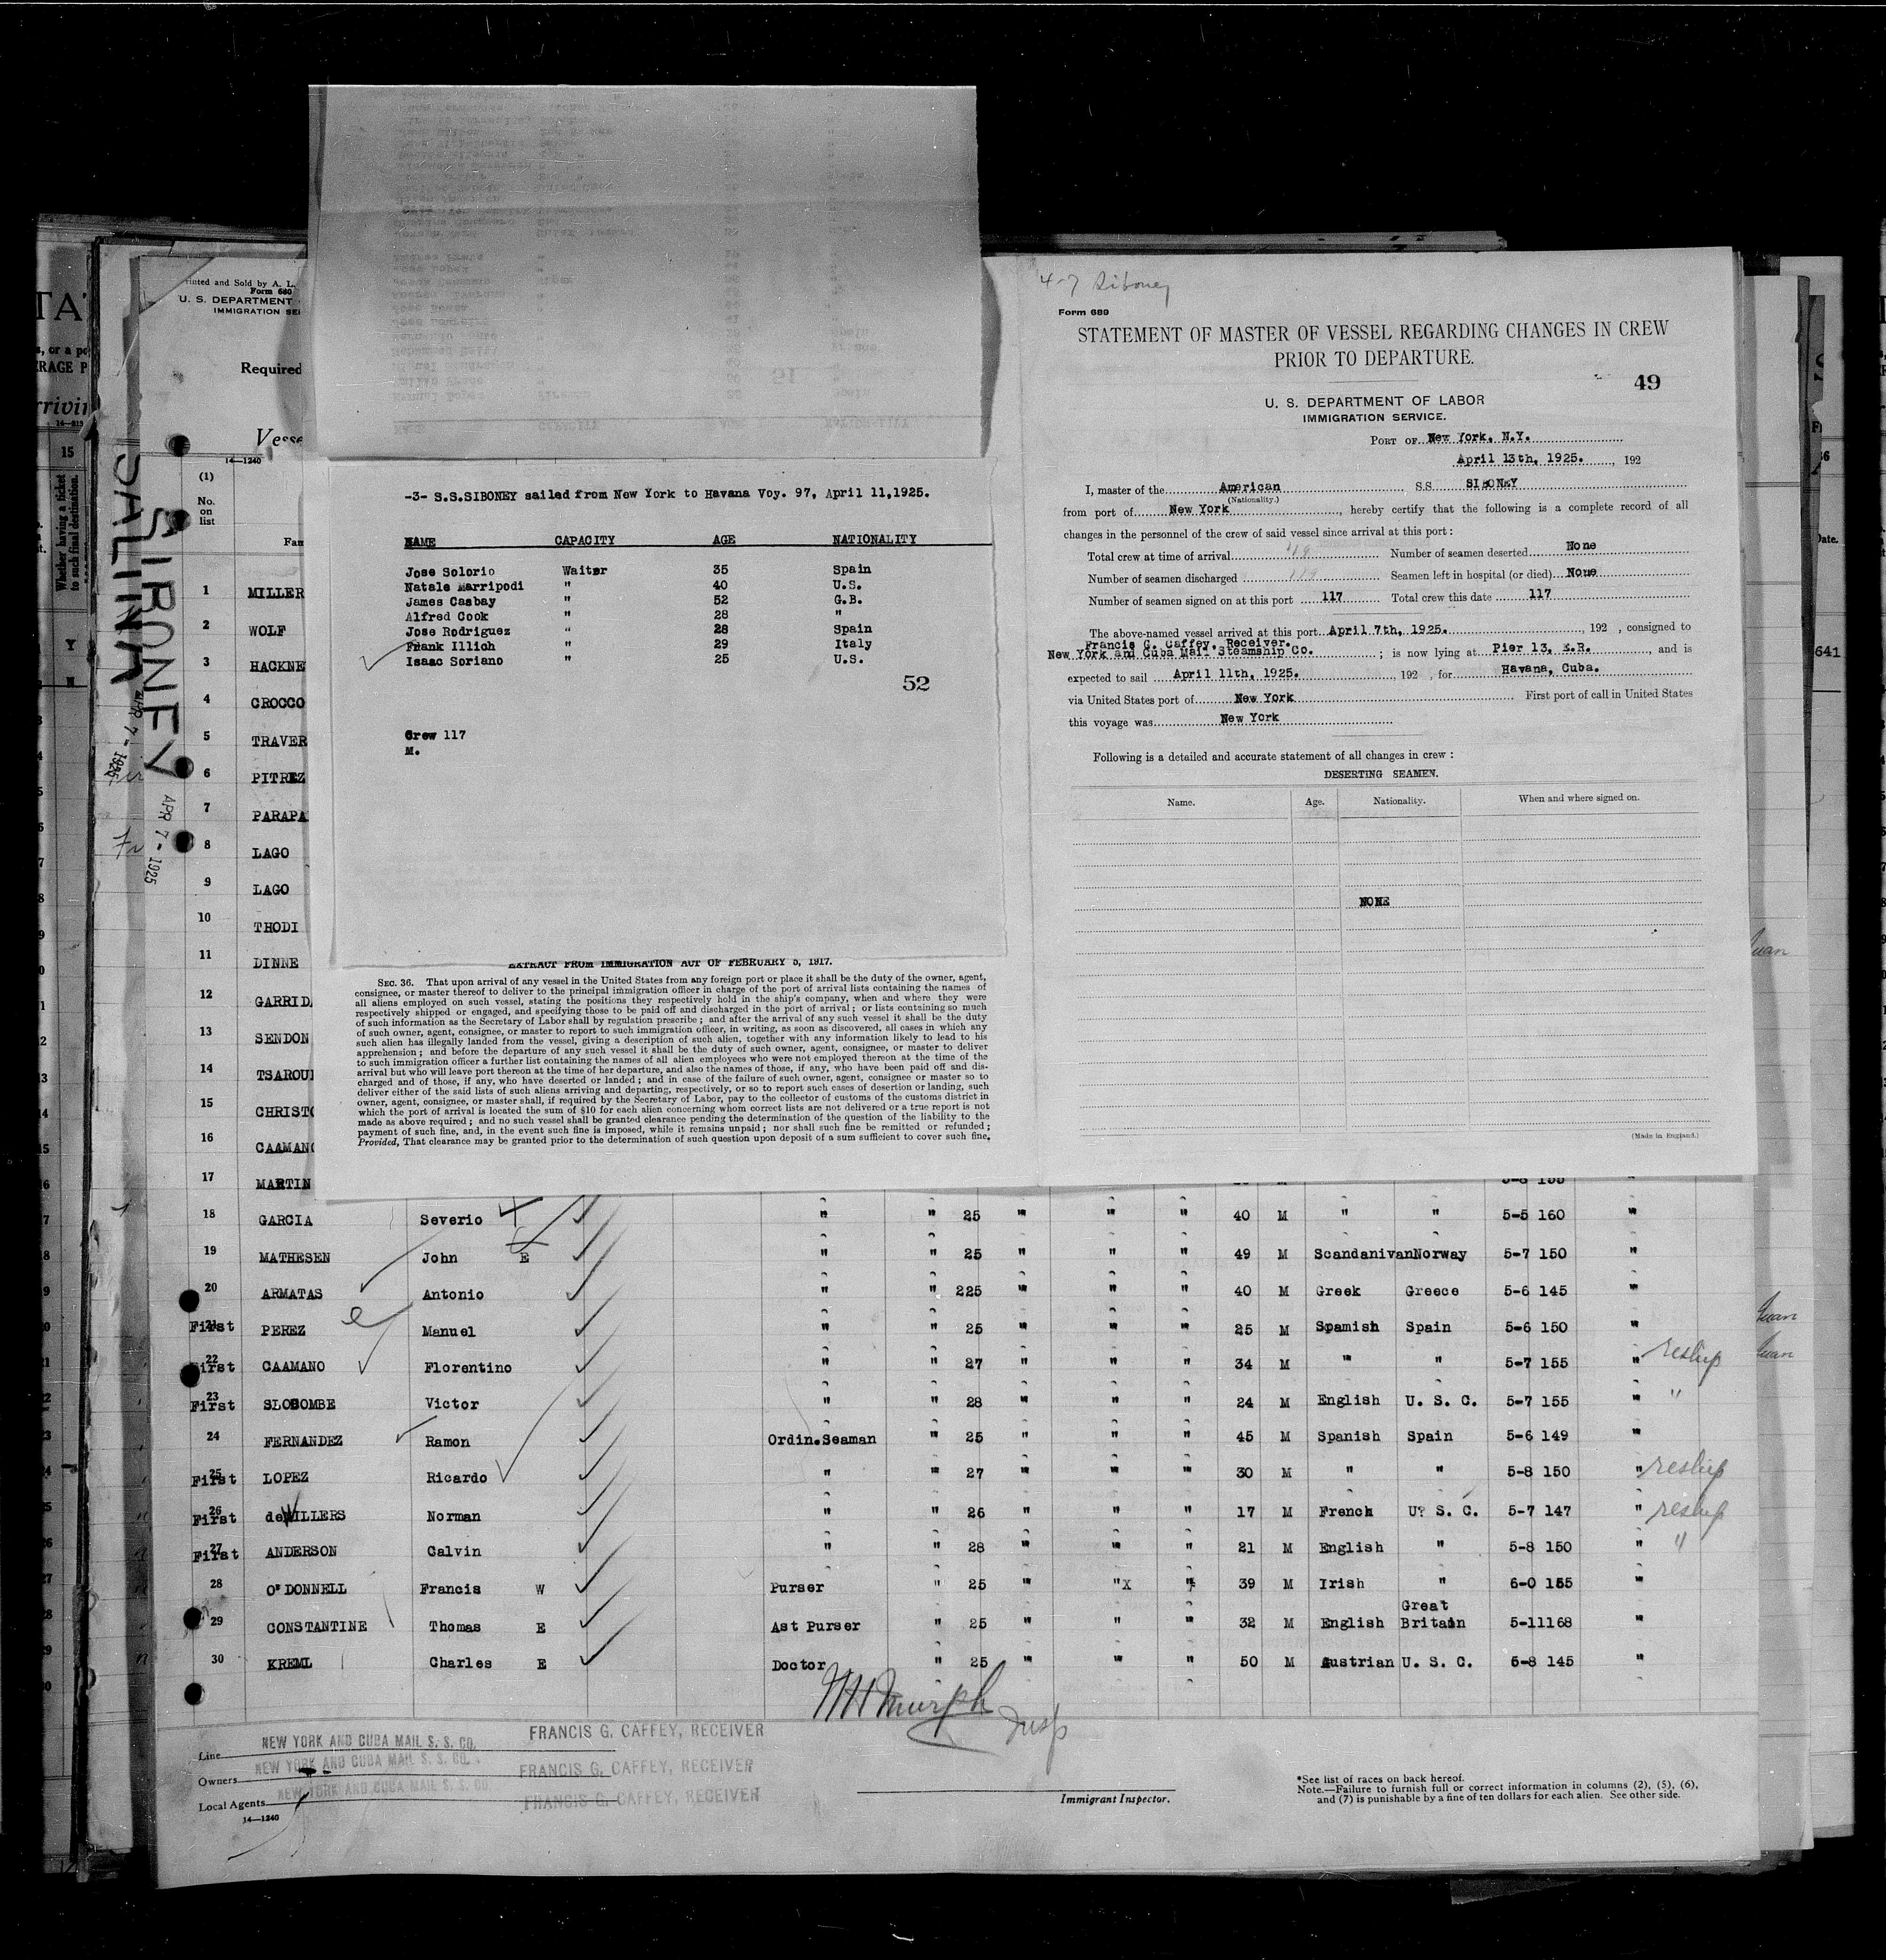 4-7 Siboney
Form 689
STATEMENT OF MASTER OF VESSEL REGARDING CHANGES IN CREW
PRIOR TO DEPARTURE.
49
U. S. DEPARTMENT OF LABOR
IMMIGRATION SERVICE.
PORT OF New York, N.Y.
April 13th, 1925. , 192
I, master of the American S.S. SIBONEY
(Nationality.)
from port of New York , hereby certify that the following is a complete record of all
changes in the personnel of the crew of said vessel since arrival at this port :
Total crew at time of arrival Number of seamen deserted None
Number of seamen discharged Seamen left in hospital (or died) None
Number of seamen signed on at this port 117 Total crew this date 117
The above-named vessel arrived at this port April 7th, 1925. , 192 , consigned to
Francis G. Caffey, Receiver.
New York and Cuba Mail Steamship Co. ; is now lying at Pier 13, E.R. , and is
expected to sail April 11th, 1925. , 192 , for Havana, Cuba.
via United States port of New York First port of call in United States
this voyage was New York
Following is a detailed and accurate statement of all changes in crew :
DESERTING SEAMEN.
Name. Age. Nationality. When and where signed on.
NONE
(Made in England.)
-3- S.S.SIBONEY sailed from New York to Havana Voy. 97, April 11,1925.
NAME CAPACITY AGE NATIONALITY
Jose Solorio Waiter 35 Spain
Natale Marripodi " 40 U.S.
James Casbay " 52 G.B.
Alfred Cook " 28 "
Jose Rodriguez " 28 Spain
Frank Illich " 29 Italy
Isaac Soriano " 25 U.S.
52
Crew 117
M.
EXTRACT FROM IMMIGRATION ACT OF FEBRUARY 5, 1917.
SEC. 36. That upon arrival of any vessel in the United States from any foreign port or place it shall be the duty of the owner, agent,
consignee, or master thereof to deliver to the principal immigration officer in charge of the port of arrival lists containing the names of
all aliens employed on such vessel, stating the positions they respectively hold in the ship's company, when and where they were
respectively shipped or engaged, and specifying those to be paid off and discharged in the port of arrival ; or lists containing so much
of such information as the Secretary of Labor shall by regulation prescribe ; and after the arrival of any such vessel it shall be the duty
of such owner, agent, consignee, or master to report to such immigration officer, in writing, as soon as discovered, all cases in which any
such alien has illegally landed from the vessel, giving a description of such alien, together with any information likely to lead to his
apprehension ; and before the departure of any such vessel it shall be the duty of such owner, agent, consignee, or master to deliver
to such immigration officer a further list containing the names of all alien employees who were not employed thereon at the time of the
arrival but who will leave port thereon at the time of her departure, and also the names of those, if any, who have been paid off and dis-
charged and of those, if any, who have deserted or landed ; and in case of the failure of such owner, agent, consignee or master so to
deliver either of the said lists of such aliens arriving and departing, respectively, or so to report such cases of desertion or landing, such
owner, agent, consignee, or master shall, if required by the Secretary of Labor, pay to the collector of customs of the customs district in
which the port of arrival is located the sum of $10 for each alien concerning whom correct lists are not delivered or a true report is not
made as above required ; and no such vessel shall be granted clearance pending the determination of the question of the liability to the
payment of such fine, and, in the event such fine is imposed, while it remains unpaid ; nor shall such fine be remitted or refunded ;
Provided, That clearance may be granted prior to the determination of such question upon deposit of a sum sufficient to cover such fine.
Printed and Sold by A. L.
Form 680
U. S. DEPARTMENT
IMMIGRATION SE
Required
Vesse
14—1240
(1)
No.
on
list
Fam
SALINA
SIBONEY
APR 7 - 1925
APR 7 - 1925
1 MILLER
2 WOLF
3 HACKNE
4 CROCCO
5 TRAVER
6 PITREZ
7 PARAPA
8 LAGO
9 LAGO
10 THODI
11 DINNE
12 GARRIDA
13 SENDON
14 TSAROU
15 CHRISTO
16 CAAMANO
17 MARTIN 5-8 155 "
18 GARCIA Severio " " 25 " " " 40 M " " 5-5 160 "
19 MATHESEN John E " " 25 " " " 49 M ScandanivanNorway 5-7 150 "
20 ARMATAS Antonio " " 225 " " " 40 M Greek Greece 5-6 145 "
21 First PEREZ Manuel " " 25 " " " 25 M Spamish Spain 5-6 150 "
22 First CAAMANO Florentino " " 27 " " " 34 M " " 5-7 155 " reship
23 First SLOCOMBE Victor " " 28 " " " 24 M English U. S. C. 5-7 155 " "
24 FERNANDEZ Ramon Ordin.Seaman " 25 " " " 45 M Spanish Spain 5-6 149 "
25 First LOPEZ Ricardo " " 27 " " " 30 M " " 5-8 150 " reship
26 First deVILLERS Norman " " 26 " " " 17 M French U? S. C. 5-7 147 " reship
27 First ANDERSON Calvin " " 28 " " " 21 M English " 5-8 150 " "
28 O'DONNELL Francis W Purser " 25 " "X " 39 M Irish " 6-0 155 "
29 CONSTANTINE Thomas E Ast Purser " 25 " " " 32 M English Great Britain 5-11168 "
30 KREML Charles E Doctor " 25 " " " 50 M Austrian U. S. C. 5-8 145 "
Insp
Line NEW YORK AND CUBA MAIL S. S. CO. FRANCIS G. CAFFEY, RECEIVER
Owners NEW YORK AND CUBA MAIL S. S. CO. FRANCIS G. CAFFEY, RECEIVER
Local Agents NEW YORK AND CUBA MAIL S. S. CO. FRANCIS G. CAFFEY, RECEIVER
14—1240
Immigrant Inspector.
*See list of races on back hereof.
Note.—Failure to furnish full or correct information in columns (2), (5), (6),
and (7) is punishable by a fine of ten dollars for each alien. See other side.
15
Whether having a ticket
to such final destination.
641